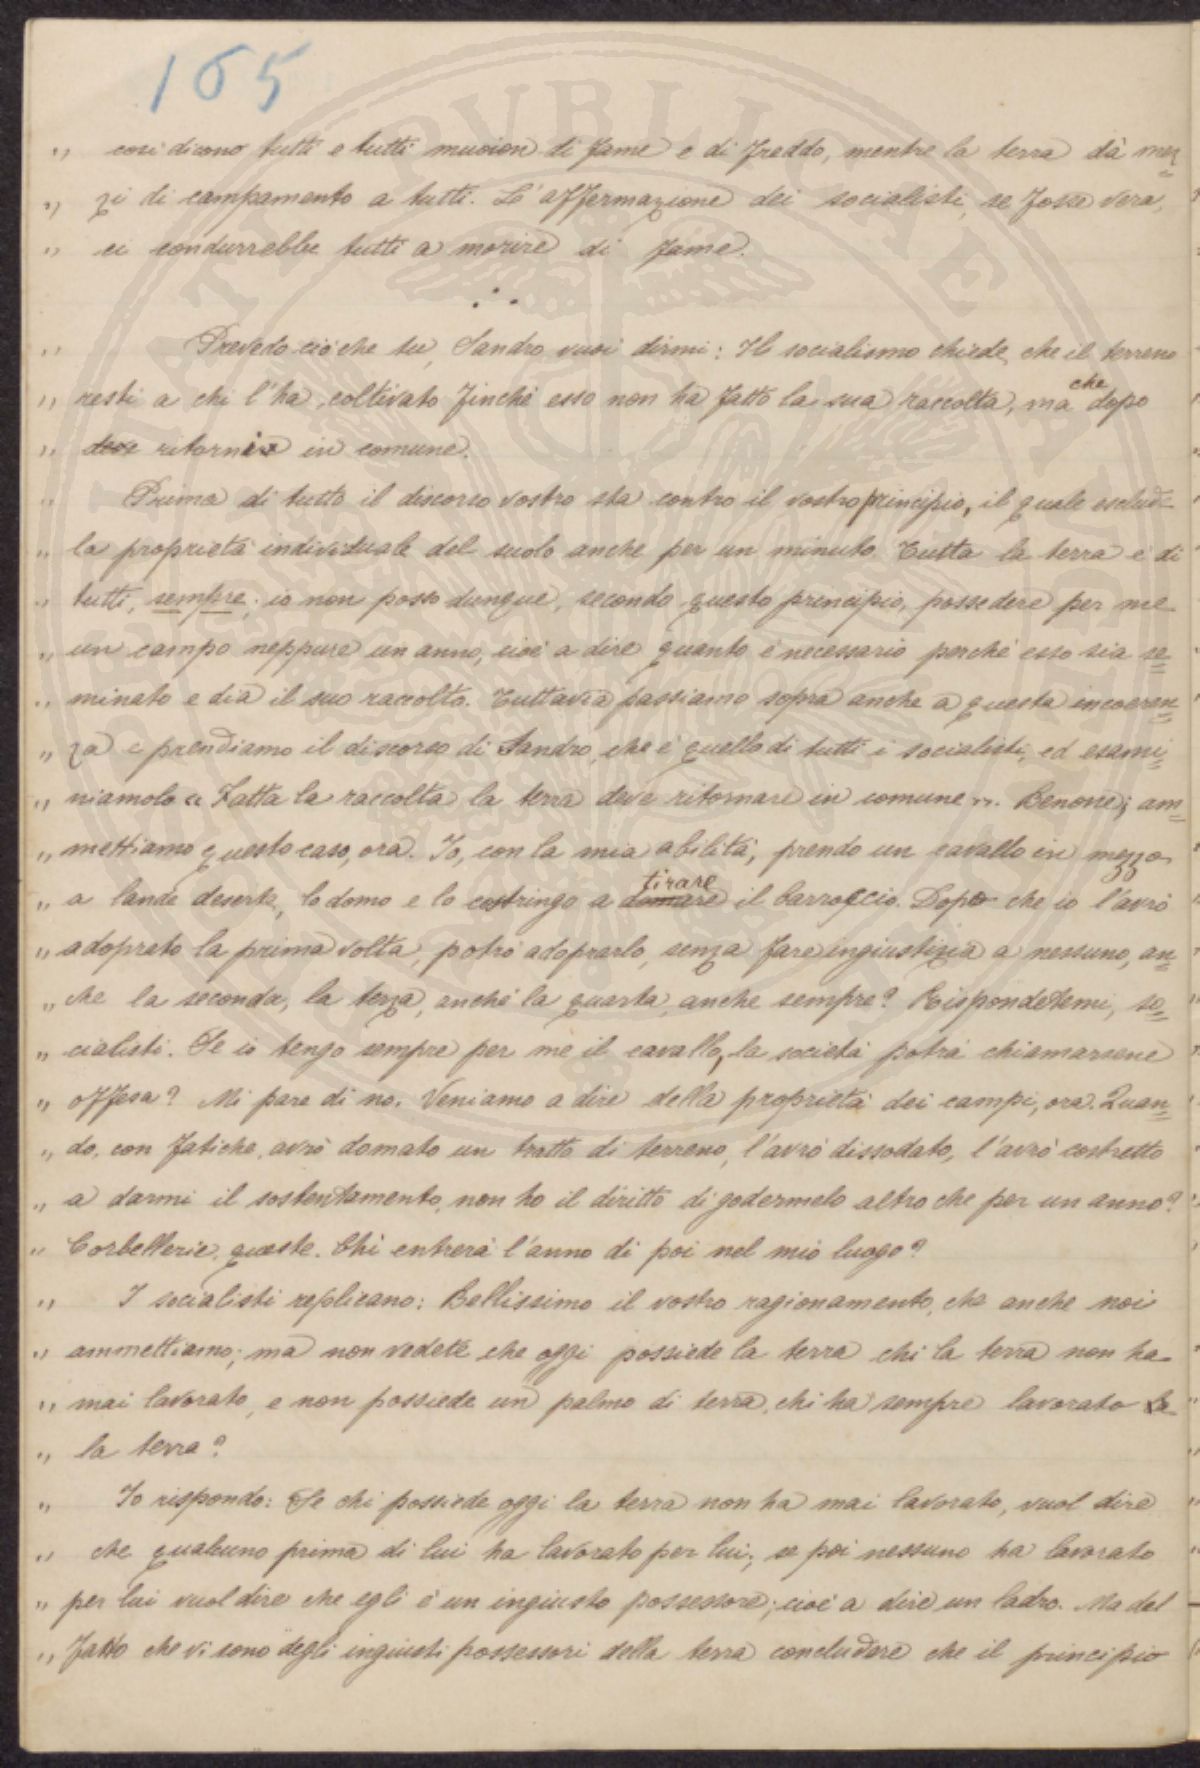 165
" così dicono tutti e tutti muoion di fame e di freddo, mentre la terra dà mez=
" zi di campamento a tutti. Lé affermazione dei socialisti, se fosse vera,
" ci condurrebbe tutti a morire di fame.
∴
" Prevedo ciò che tu, Sandro, vuoi dirmi: Il socialismo chiede, che il terreno
" resti a chi l'ha coltivato finchè esso non ha fatto la sua raccolta, ma che dopo
" deve ritorni in comune.
" Prima di tutto il discorso vostro sta contro il vostro principio, il quale esclude
" la proprietà individuale del suolo anche per un minuto. Tutta la terra è di
" tutti, sempre; io non posso dunque, secondo questo principio, possedere per me
" un campo neppure un anno, cioè a dire quanto è necessario perchè esso sia se=
" minato e dia il suo raccolto. Tuttavia passiamo sopra anche a questa incoeren=
" za e prendiamo il discorso di Sandro, che è quello di tutti i socialisti, ed esami=
" niamolo « Fatta la raccolta la terra deve ritornare in comune ». Benone; am=
" mettiamo questo caso, ora. Io, con la mia abilità, prendo un cavallo in mezzo
" a lande deserte, lo domo e lo costringo a domare tirare il barroccio. Dopo che io l'avrò
" adoprato la prima volta, potrò adoprarlo, senza fare ingiustizia a nessuno, an=
" che la seconda, la terza, anche la quarta, anche sempre? Rispondetemi, so=
" cialisti. Se io tengo sempre per me il cavallo, la società potrà chiamarsene
" offesa? Mi pare di no. Veniamo a dire della proprietà dei campi, ora. Quan=
" do, con fatiche, avrò domato un tratto di terreno, l'avrò dissodato, l'avrò costretto
" a darmi il sostentamento, non ho il diritto di godermelo altro che per un anno?
" Corbellerie, queste. Chi entrerà l'anno di poi nel mio luogo?
" I socialisti replicano: Bellissimo il vostro ragionamento, che anche noi
" ammettiamo; ma non vedete che oggi possiede la terra chi la terra non ha
" mai lavorato, e non possiede un palmo di terra, chi ha sempre lavorato
" la terra?
" Io rispondo: Se chi possiede oggi la terra non ha mai lavorato, vuol dire
" che qualcuno prima di lui ha lavorato per lui; se poi nessuno ha lavorato
" per lui vuol dire che egli è un ingiusto possessore; cioè a dire un ladro. Ma dal
" fatto che vi sono degli ingiusti possessori della terra concludere che il principio